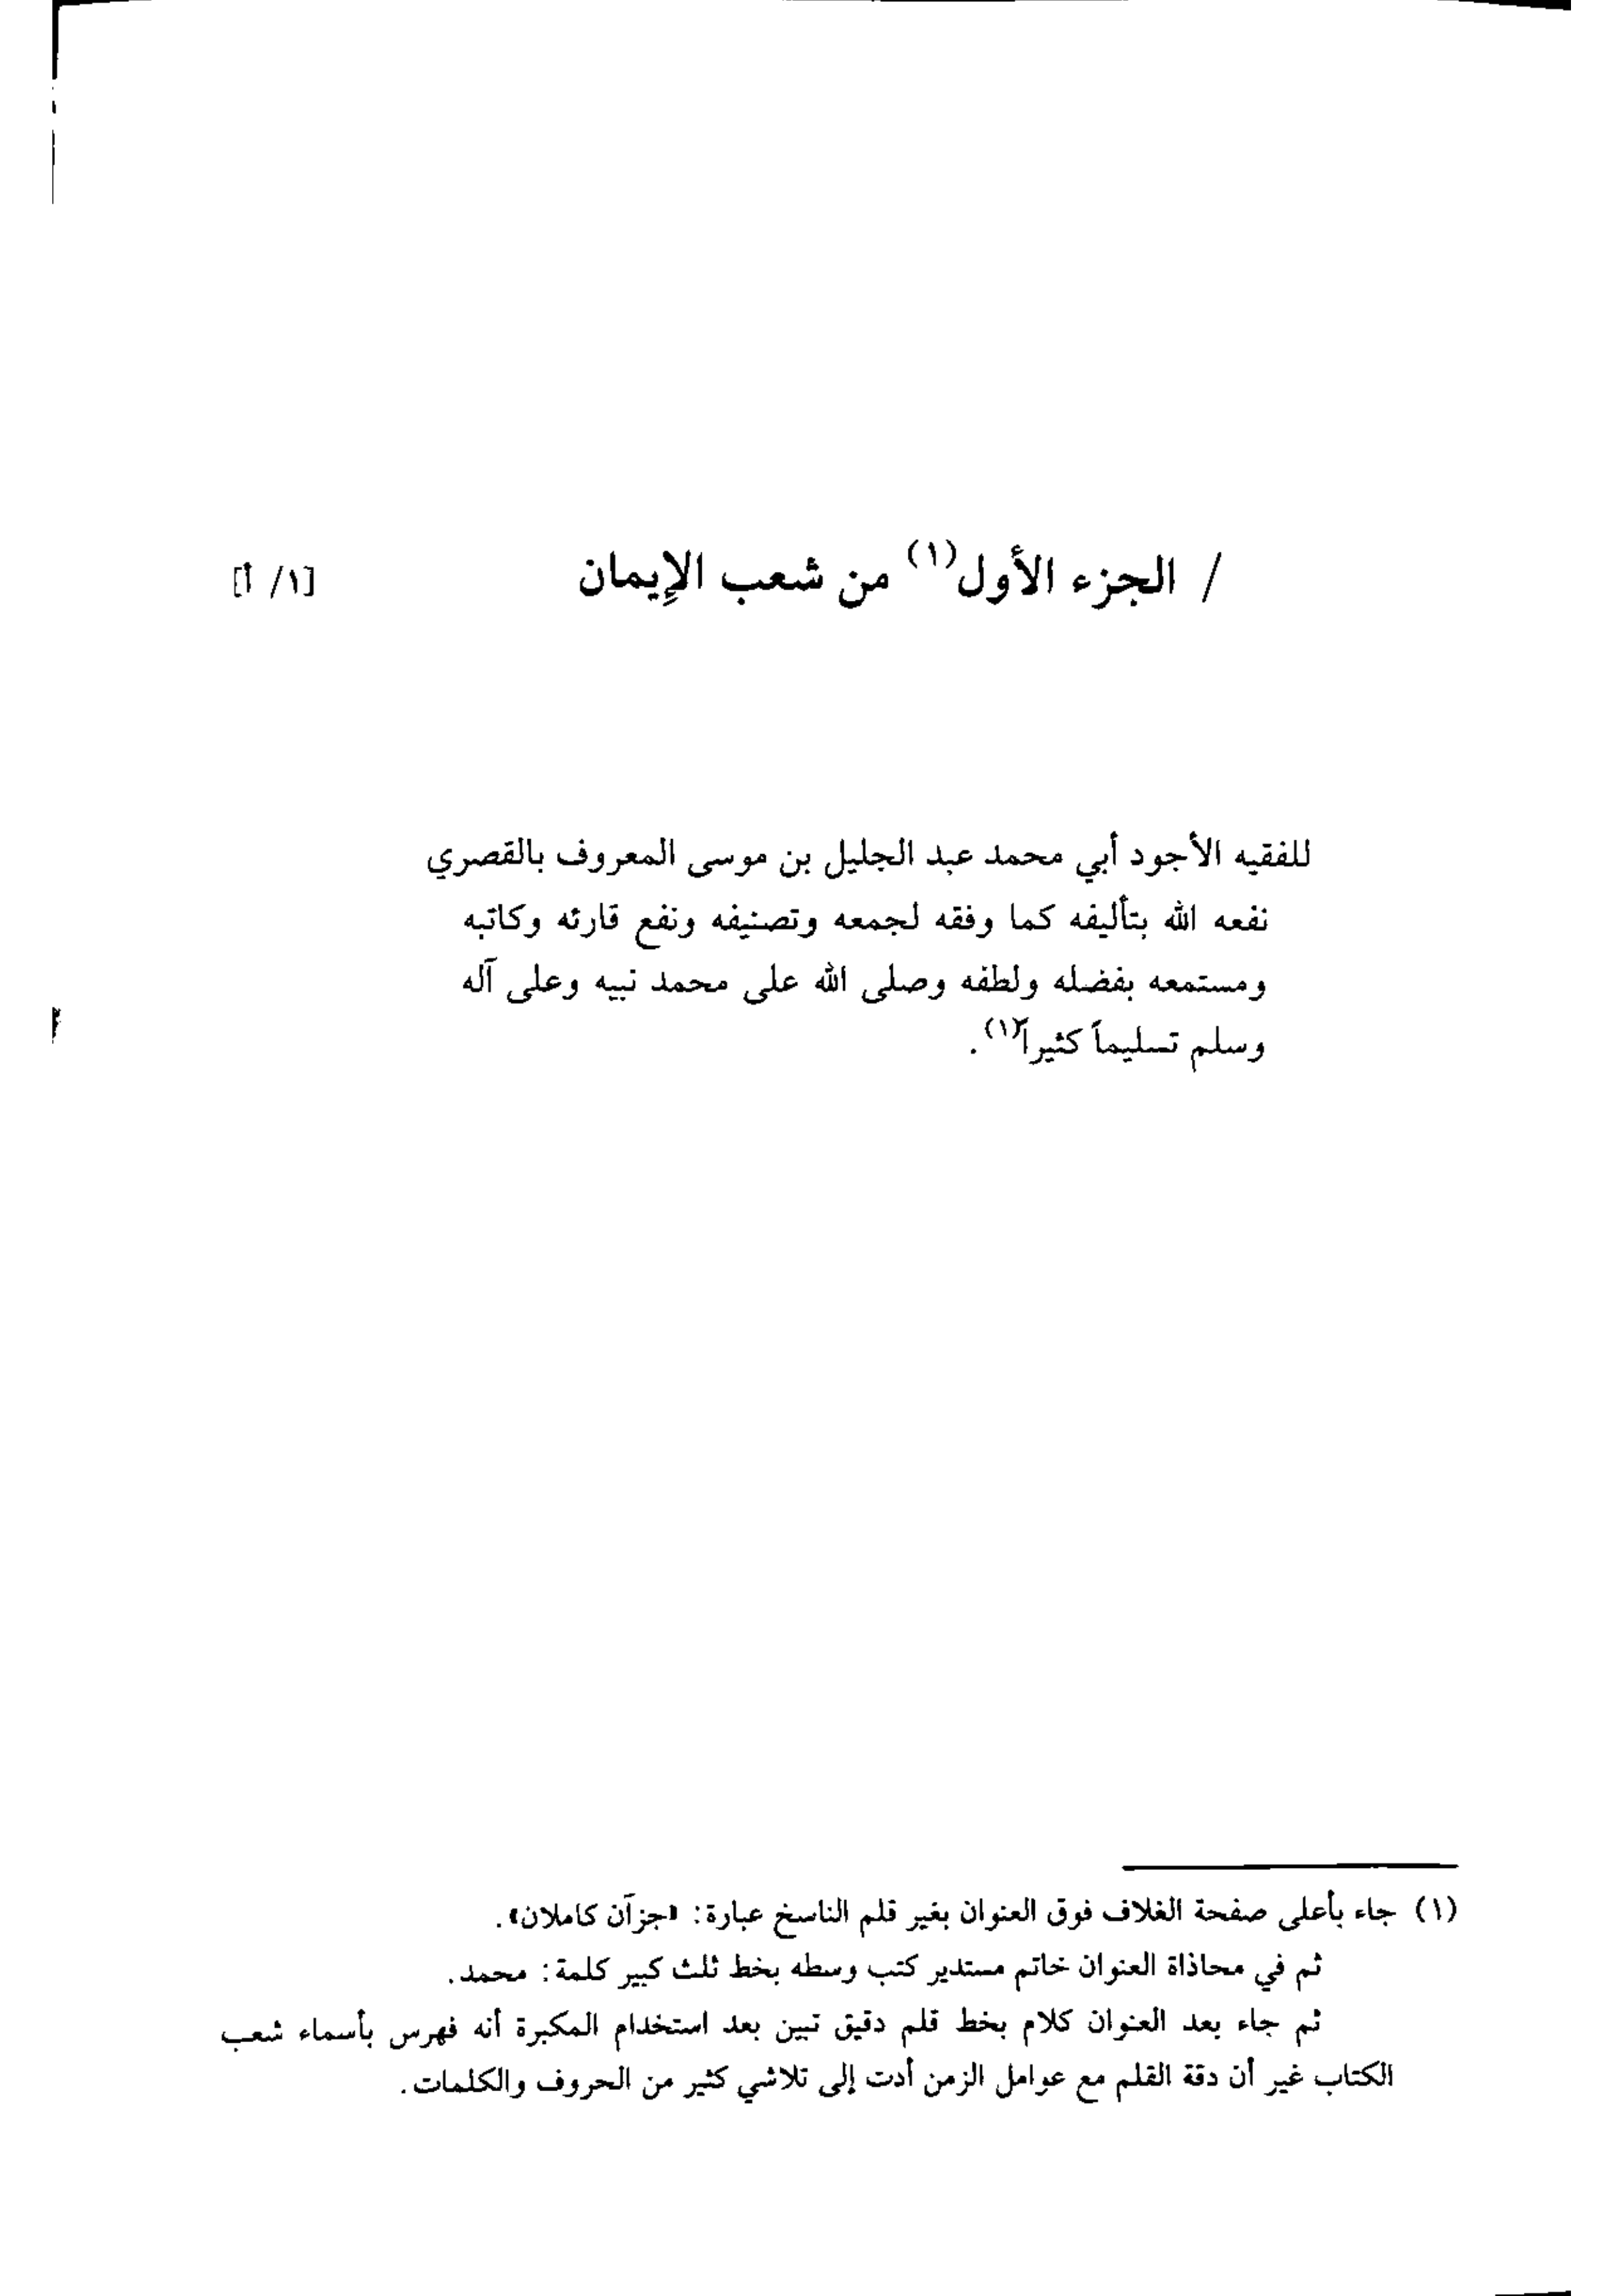 / الجزء الأول(١) من شعب الإيمان [١/ أ]
للفقيه الأجود أبي محمد عبد الجليل بن موسى المعروف بالقصري
نفعه الله بتأليفه كما وفقه لجمعه وتصنيفه ونفع قارئه وكاتبه
ومستمعه بفضله ولطفه وصلى الله على محمد نبيه وعلى آله
وسلم تسليماً كثيراً(١).
(١) جاء بأعلى صفحة الغلاف فوق العنوان بغير قلم الناسخ عبارة: «جزآن كاملان».
ثم في محاذاة العنوان خاتم مستدير كتب وسطه بخط ثلث كبير كلمة: محمد.
ثم جاء بعد العنوان كلام بخط قلم دقيق تبين بعد استخدام المكبرة أنه فهرس بأسماء شعب
الكتاب غير أن دقة القلم مع عوامل الزمن أدت إلى تلاشي كثير من الحروف والكلمات.